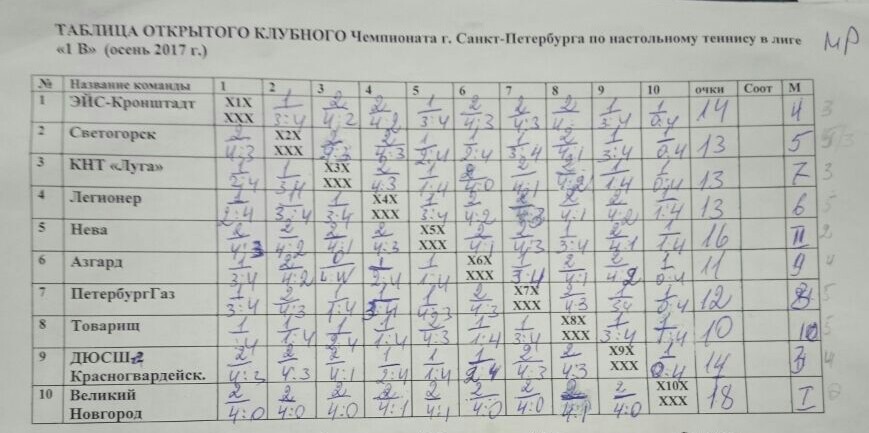 ТАБЛИЦА ОТКРЫТОГО КЛУБНОГО Чемпионата г. Санкт-Петербурга по настольному теннису в лиге
«1 В» (осень 2017 г.)
№ Название команды 1 2 3 4 5 6 7 8 9 10 очки Соот М
1 ЭЙС-Кронштадт X1X 1 2 2 1 2 2 2 1 1 14 4
XXX 3:4 4:2 4:2 3:4 4:3 4:3 3:4 0:4
2 Светогорск 2 X2X 2 1 1 2 1 1 13 5
4:3 XXX 2:4 3:4 4:1 3:4 0:4
3 КНТ «Луга» 1 1 X3X 2 1 2 2 2 1 1 13 7
3:4 XXX 4:3 1:4 4:0 4:1 4:2 1:4 0:4
4 Легионер 1 1 1 X4X 1 2 2 2 2 1 13 6
2:4 3:4 3:4 XXX 3:4 4:2 4:3 4:1 4:2 1:4
5 Нева 2 2 2 2 X5X 2 2 1 2 1 16 II
4:3 4:2 4:1 4:3 XXX 4:1 4:3 3:4 4:1 1:4
6 Азгард 1 2 0 1 1 X6X 1 2 2 1 11 9
3:4 4:2 2:4 1:4 XXX 3:4 4:1 4:2 0:4
7 ПетербургГаз 1 2 1 1 1 2 X7X 2 1 1 12 8
3:4 4:3 1:4 3:4 4:3 XXX 4:3 3:4 0:4
8 Товарищ 1 1 1 1 2 1 1 X8X 1 1 10 10
1:4 2:4 1:4 4:3 1:4 3:4 XXX 3:4 1:4
9 ДЮСШ-2 2 2 2 1 1 1 2 2 X9X 1 14 3
Красногвардейск. 4:3 4:3 4:1 2:4 1:4 2:4 4:3 4:3 XXX 0:4
10 Великий 2 2 2 2 2 2 2 2 2 X10X 18 I
Новгород 4:0 4:0 4:0 4:1 4:1 4:0 4:0 4:1 4:0 XXX